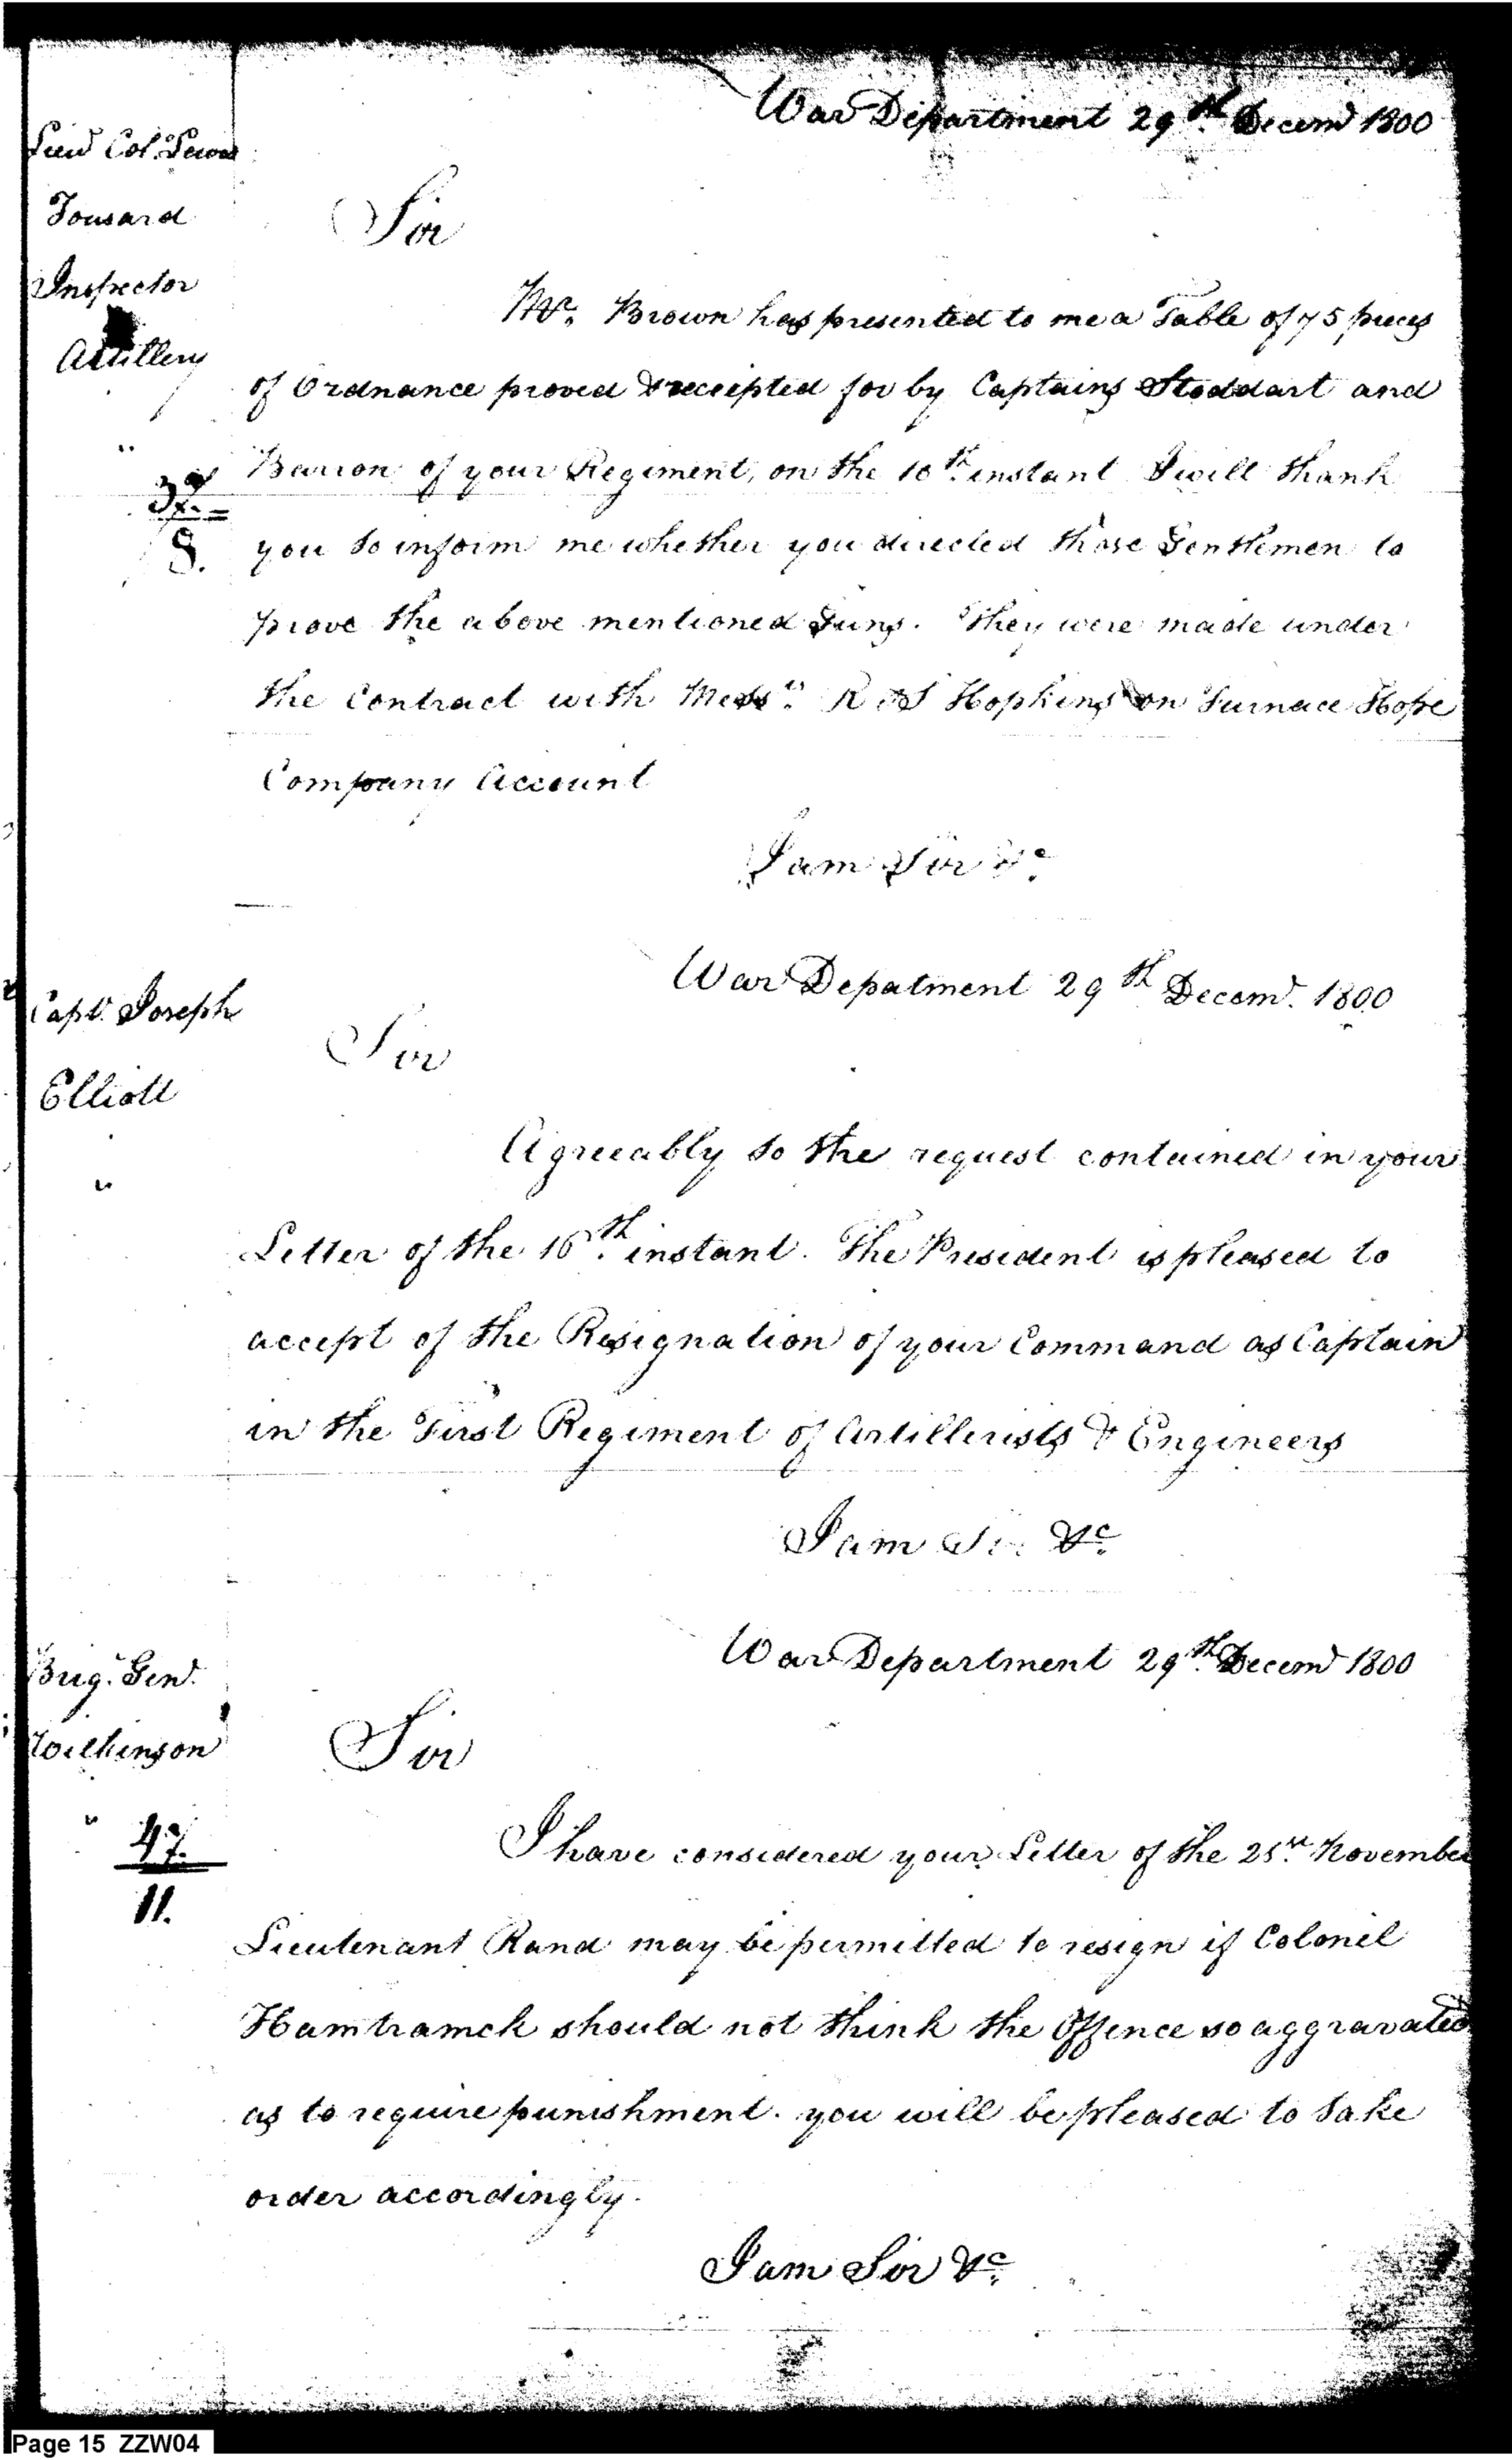 War Department 29th. Decemr 1800
Lieut Col. Lewis
Tousard
Inspector
Artillery
Sir
Mr. Brown has presented to me a Table of 75 pieces
of Ordnance proved & receipted for by Captains Stoddart and
Barron of your Regiment, on the 10th. instant I will thank
you to inform me whether you directed those Gentlemen to
8.
prove the above mentioned Guns. They were made under
the Contract with Messrs. R & S Hopkins on Furnace Hope
Company Account
I am Sir &c.
War Depatment 29th Decemr. 1800
Capt. Joseph
Elliott
Sir
Agreeably to the request contained in your
Letter of the 16th. instant. The President is pleased to
accept of the Resignation of your Command as Captain
in the First Regiment of Artillerists & Engineers
I am Sir &c.
War Department 29th. Decemr 1800
Brig. Genl.
Wilkinson
Sir
47.
11.
I have considered your Letter of the 25th. November
Lieutenant Rand may be permitted to resign if Colonel
Hamtramck should not think the Offence so aggravated
as to require punishment. you will be pleased to take
order accordingly.
I am Sir &c.
Page 15 ZZW04